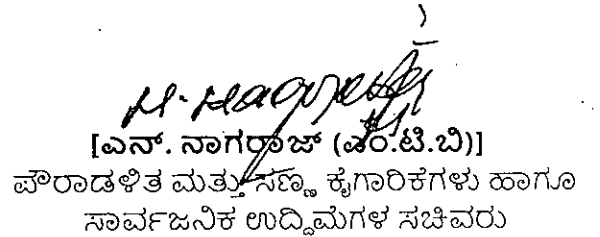 [ಎನ್. ನಾಗರಾಜ್ (ಎಂ.ಟಿ.ಬಿ)]
ಪೌರಾಡಳಿತ ಮತ್ತು ಸಣ್ಣ ಕೈಗಾರಿಕೆಗಳು ಹಾಗೂ
ಸಾರ್ವಜನಿಕ ಉದ್ದಿಮೆಗಳ ಸಚಿವರು